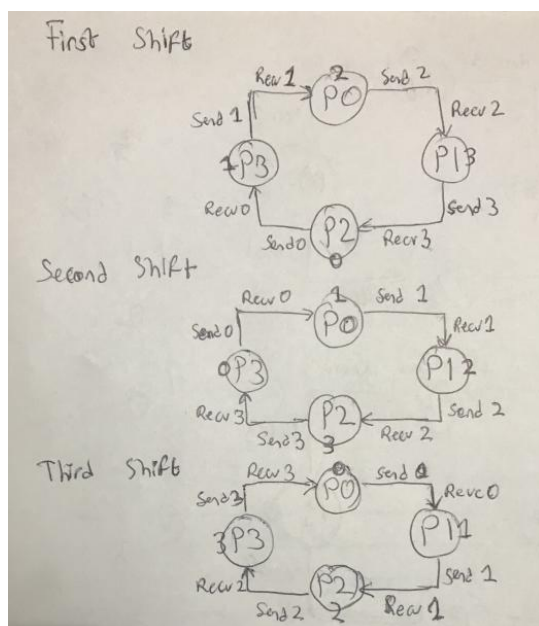 First Shift
Recv 1 2 Send 2
P0
Send 1 Recv 2
1 P3 P1 3
Recv 0 Send 3
Send 0 P2 Recv 3
0
Second Shift
Recv 0 1 Send 1
P0
Send 0 Recv 1
0 P3 P1 2
Recv 3 Send 2
Send 3 P2 Recv 2
3
Third Shift
Recv 3 0 Send
P0
Send 3 Revc 0
3 P3 P1 1
Recv 2 Send 1
Send 2 P2 Recv 1
2